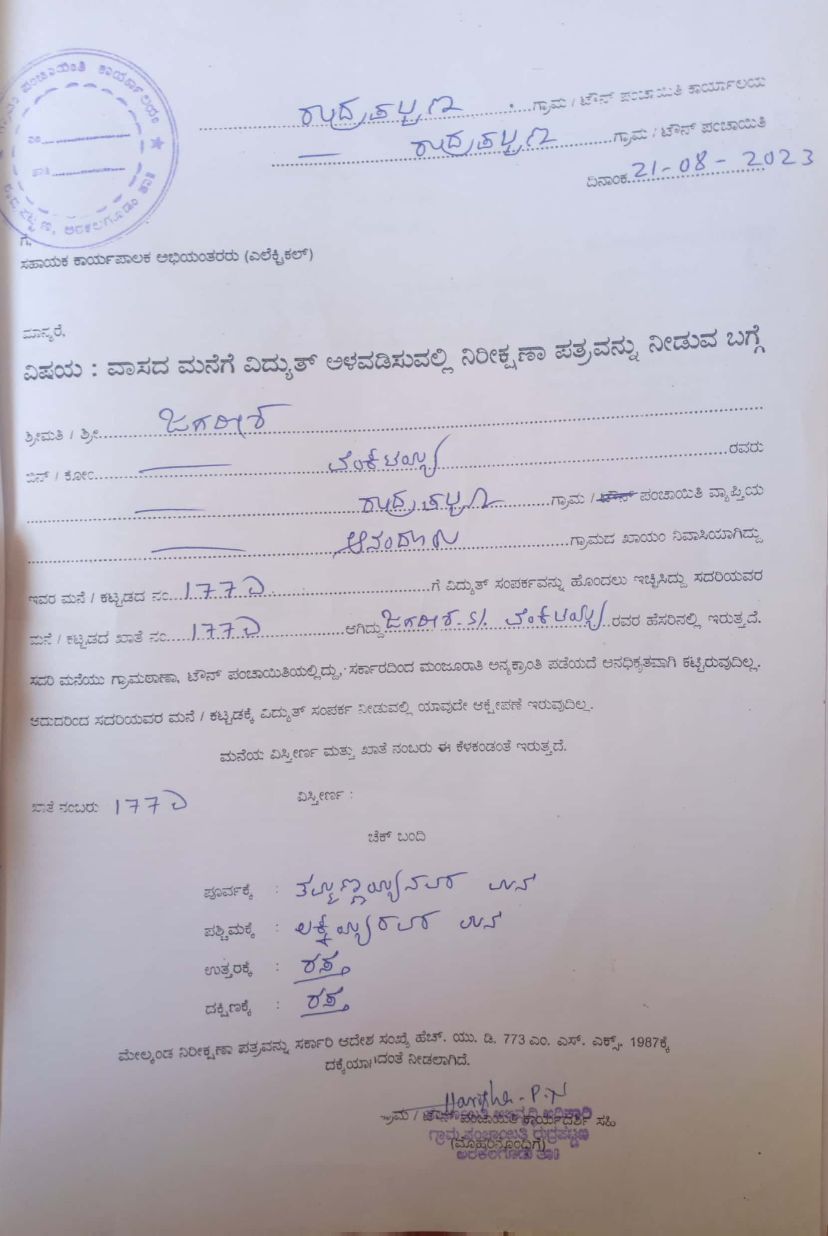 ಪಂಚಾಯಿತಿ ಕಾರ್ಯಾಲಯ
ರುದ್ರಪಟ್ಟಣ, ಅರಕಲಗೂಡು
ರುದ್ರಪಟ್ಟಣ ಗ್ರಾಮ / ಟೌನ್ ಪಂಚಾಯಿತಿ ಕಾರ್ಯಾಲಯ
ರುದ್ರಪಟ್ಟಣ ಗ್ರಾಮ / ಟೌನ್ ಪಂಚಾಯಿತಿ
ದಿನಾಂಕ 21-08-2023
ಗೆ,
ಸಹಾಯಕ ಕಾರ್ಯಪಾಲಕ ಅಭಿಯಂತರರು (ಎಲೆಕ್ಟ್ರಿಕಲ್)
ಮಾನ್ಯರೆ,
ವಿಷಯ : ವಾಸದ ಮನೆಗೆ ವಿದ್ಯುತ್ ಅಳವಡಿಸುವಲ್ಲಿ ನಿರೀಕ್ಷಣಾ ಪತ್ರವನ್ನು ನೀಡುವ ಬಗ್ಗೆ
ಶ್ರೀಮತಿ / ಶ್ರೀ ಜಗದೀಶ್
ಬಿನ್ / ಕೋಂ ವೆಂಕಟಯ್ಯ ರವರು
ರುದ್ರಪಟ್ಟಣ ಗ್ರಾಮ / ಟೌನ್ ಪಂಚಾಯಿತಿ ವ್ಯಾಪ್ತಿಯ
ಗ್ರಾಮದ ಖಾಯಂ ನಿವಾಸಿಯಾಗಿದ್ದು
ಇವರ ಮನೆ / ಕಟ್ಟಡದ ನಂ. 177 ಗೆ ವಿದ್ಯುತ್ ಸಂಪರ್ಕವನ್ನು ಹೊಂದಲು ಇಚ್ಛಿಸಿದ್ದು ಸದರಿಯವರ
ಮನೆ / ಕಟ್ಟಡದ ಖಾತೆ ನಂ. 177 ಆಗಿದ್ದು ಜಗದೀಶ್. S/. ವೆಂಕಟಯ್ಯ ರವರ ಹೆಸರಿನಲ್ಲಿ ಇರುತ್ತದೆ.
ಸದರಿ ಮನೆಯು ಗ್ರಾಮಠಾಣಾ, ಟೌನ್ ಪಂಚಾಯಿತಿಯಲ್ಲಿದ್ದು, ಸರ್ಕಾರದಿಂದ ಮಂಜೂರಾತಿ ಅನ್ಯಕ್ರಾಂತಿ ಪಡೆಯದೆ ಅನಧಿಕೃತವಾಗಿ ಕಟ್ಟಿರುವುದಿಲ್ಲ.
ಆದುದರಿಂದ ಸದರಿಯವರ ಮನೆ / ಕಟ್ಟಡಕ್ಕೆ ವಿದ್ಯುತ್ ಸಂಪರ್ಕ ನೀಡುವಲ್ಲಿ ಯಾವುದೇ ಆಕ್ಷೇಪಣೆ ಇರುವುದಿಲ್ಲ.
ಮನೆಯ ವಿಸ್ತೀರ್ಣ ಮತ್ತು ಖಾತೆ ನಂಬರು ಈ ಕೆಳಕಂಡಂತೆ ಇರುತ್ತದೆ.
ಖಾತೆ ನಂಬರು 177 ವಿಸ್ತೀರ್ಣ :
ಚೆಕ್ ಬಂದಿ
ಪೂರ್ವಕ್ಕೆ : ಮನೆ
ಪಶ್ಚಿಮಕ್ಕೆ : ಮನೆ
ಉತ್ತರಕ್ಕೆ : ರಸ್ತೆ
ದಕ್ಷಿಣಕ್ಕೆ : ರಸ್ತೆ
ಮೇಲ್ಕಂಡ ನಿರೀಕ್ಷಣಾ ಪತ್ರವನ್ನು ಸರ್ಕಾರಿ ಆದೇಶ ಸಂಖ್ಯೆ ಹೆಚ್. ಯು. ಡಿ. 773 ಎಂ. ಎಸ್. ಎಕ್ಸ್. 1987ಕ್ಕೆ
ನೀಡಲಾಗಿದೆ.
Harisha - P.N
ಗ್ರಾಮ / ಟೌನ್ ಪಂಚಾಯಿತಿ ಕಾರ್ಯದರ್ಶಿ ಸಹಿ
ಗ್ರಾಮ ಪಂಚಾಯಿತಿ ರುದ್ರಪಟ್ಟಣ
(ಮೊಹರಿನೊಂದಿಗೆ)
ಅರಕಲಗೂಡು ತಾ||